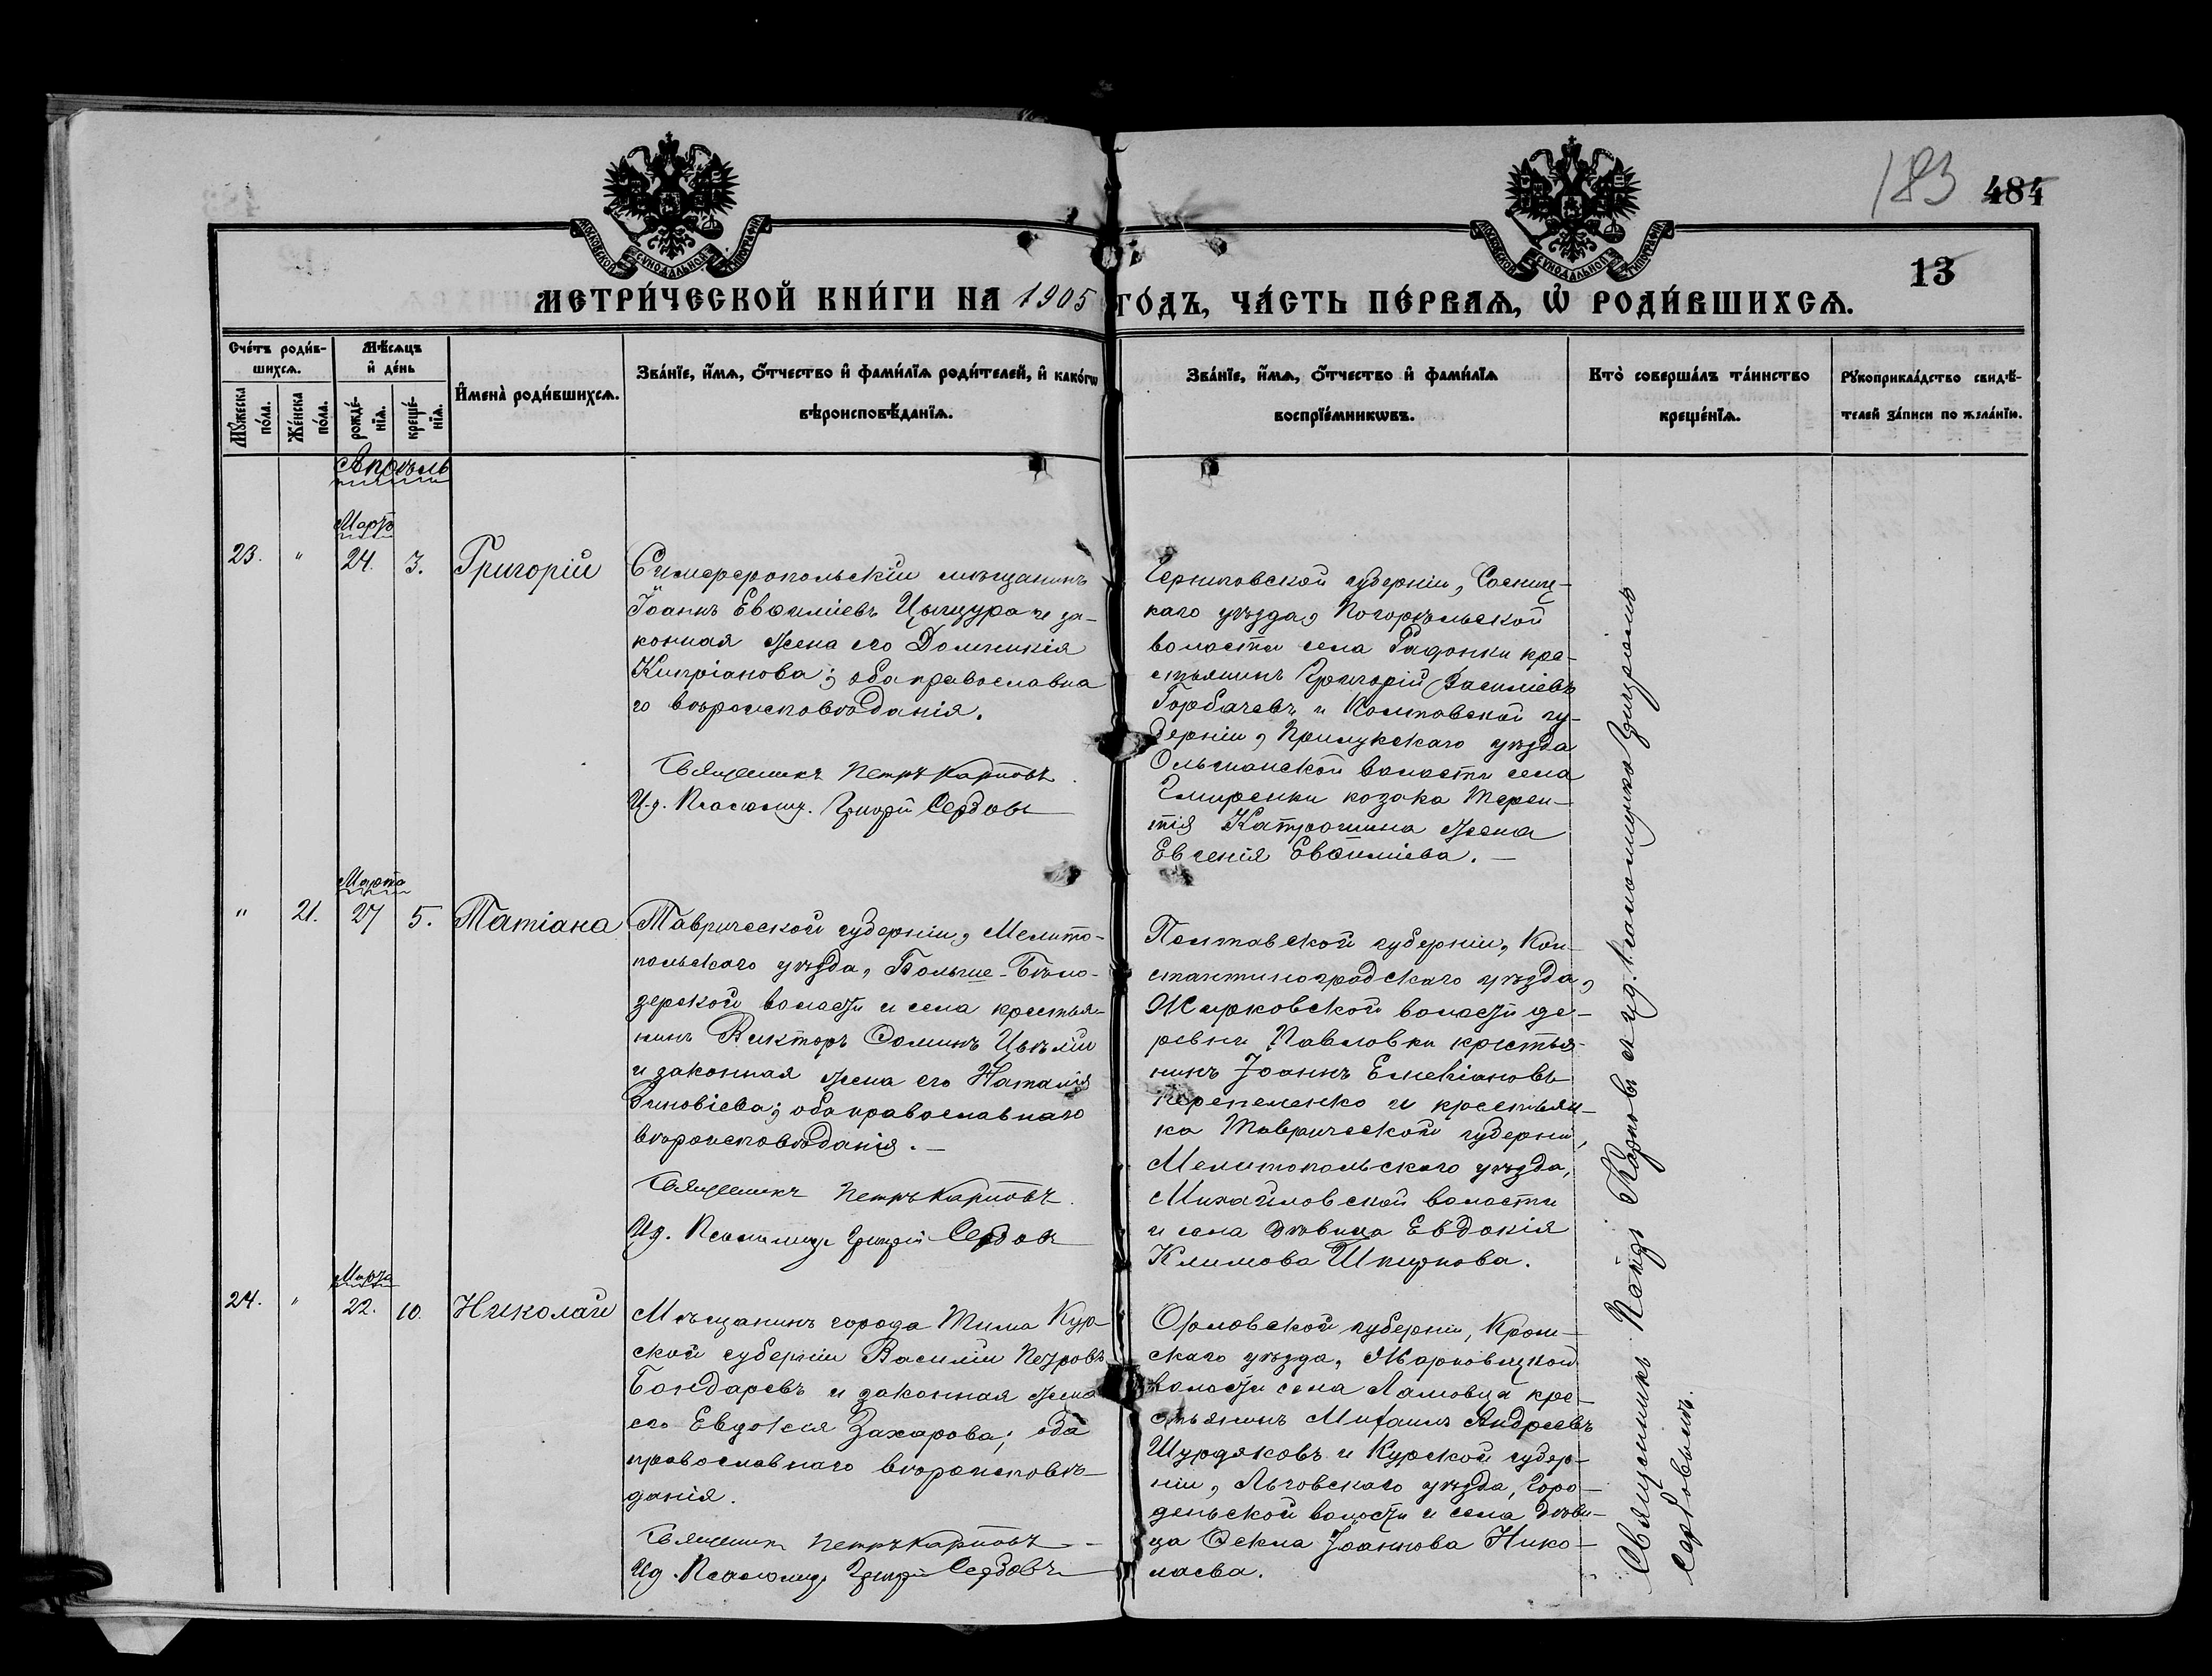 183 484
13
МОСКОВСКОЙ СУНОДАЛЬНОЙ ТИПОГРАФІИ
МОСКОВСКОЙ СУНОДАЛЬНОЙ ТИПОГРАФІИ
МЕТРИ́ЧЕСКОЙ КНИ́ГИ НА 1905 ГО́ДЪ, ЧА́СТЬ ПЕ́РВАѦ, Ѡ҆ РОДИ́ВШИХСѦ.
Сче́тъ роди́в-
шихсѧ.
Мꙋ́жеска
по́ла.
Же́нска
по́ла.
Мѣ́сѧцъ
и҆ де́нь
рожде́-
нїѧ.
креще́-
нїѧ.
И҆мена̀ роди́вшихсѧ.
Зва́нїе, и҆́мѧ, ѻ҆́тчество и҆ фами́лїѧ роди́телей, и҆ како́гѡ
вѣроисповѣ́данїѧ.
Зва́нїе, и҆́мѧ, ѻ҆́тчество и҆ фами́лїѧ
воспрїе́мникѡвъ.
Кто̀ соверша́лъ та́инство
креще́нїѧ.
Рꙋкоприкла́дство свидѣ́-
телей за́писи по жела́нїю.
Апрѣль
Марта
23. " 24. 3. Григорій
Симферопольскій мѣщанинъ
Іоаннъ Евѳиміевъ Цынцура и за-
конная жена его Домникія
Кипріанова; оба православна
го вѣроисповѣданія.
Священникъ Петръ Карповъ
И.д. Псаломщ. Григорій Сербовъ
Черниговской губерніи, Сосниц-
каго уѣзда, Погорѣльской
волости села Радонки кре-
стьянинъ Григорій Василіевъ
Горбачевъ и Полтавской гу-
берніи, Прилукскаго уѣзда
Ольшанской волости села
козака Терен-
тія жена
Евгенія Евѳиміева. —
Марта
" 21. 27 5. Татіана
Таврической губерніи, Мелито-
польскаго уѣзда, Больше-Бѣло-
зерской волости и села крестья-
нинъ Викторъ Ѳоминъ
и законная жена его Наталія
Зиновіева; оба православнаго
вѣроисповѣданія. —
Священникъ Петръ Карповъ
И.д. Псаломщ. Григорій Сербовъ
Полтавской губерніи, Кон-
стантиноградскаго уѣзда,
Жирковской волости де-
ревни Павловки крестья-
нинъ Іоаннъ Емеліановъ
Перепеленко и крестьян-
ка Таврической губерніи,
Мелитопольскаго уѣзда,
Михайловской волости
и села дѣвица Евдокія
Климова Шкурнова.
Марта
24. " 22. 10. Николай
Мѣщанинъ города Тима Кур-
ской губерніи Василій Петровъ
Бондаревъ и законная жена
его Евдокія Захарова; оба
православнаго вѣроисповѣ-
данія.
Священникъ Петръ Карповъ
И.д. Псаломщ. Григорій Сербовъ
Орловской губерніи, Кром-
скаго уѣзда,
волости села Ломовца кре-
стьянинъ Михаилъ Андреевъ
и Курской губер-
ніи, Льговскаго уѣзда, Горо-
деньской волости и села дѣви-
ца Ѳекла Іоаннова Нико-
лаева.
Священникъ Петръ Карповъ и и.д. псаломщика Григоріемъ
Сербовымъ.